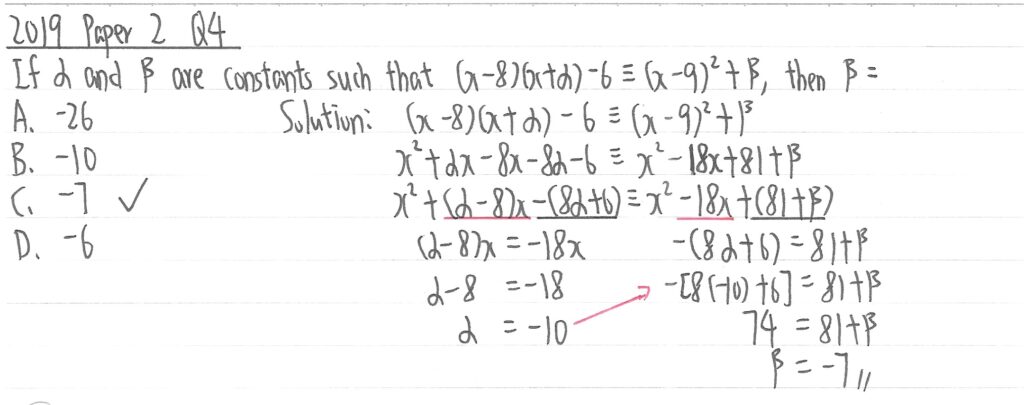 2019 Paper 2 Q4
If α and β are constants such that (x-8)(x+α)-6 ≡ (x-9)²+β, then β =
A. -26
Solution: (x-8)(x+α)-6 ≡ (x-9)²+β
B. -10
x²+αx-8x-8α-6 ≡ x²-18x+81+β
C. -7 ✓
x²+(α-8)x-(8α+6) ≡ x²-18x+(81+β)
D. -6
(α-8)x = -18x
-(8α+6) = 81+β
α-8 = -18
-[8(-10)+6] = 81+β
α = -10
74 = 81+β
β = -7 //